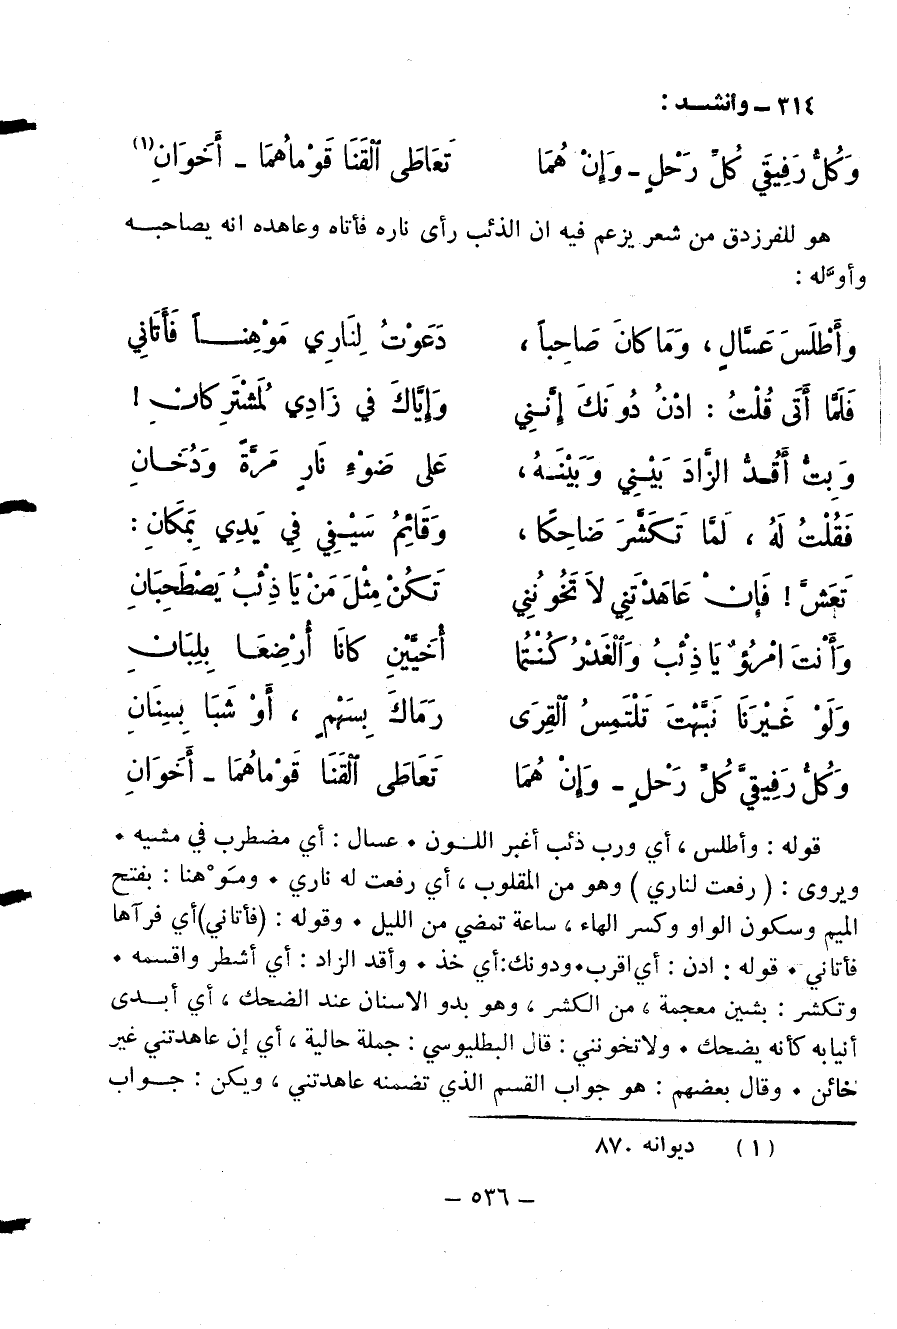 ٣١٤ – وأنشد :
وَكُلُّ رَفِيقَي كُلِّ رَحْلٍ – وَإِنْ هُمَا تَعَاطَى ٱلْقَنَا قَوْماهُمَا – أَخَوَانِ(١)
هو للفرزدق من شعر يزعم فيه ان الذئب رأى ناره فأتاه وعاهده انه يصاحبه
وأوّله :
وأَطْلَسَ عَسَّالٍ ، وَمَا كانَ صَاحِباً ، دَعَوْتُ لِنَارِي مَوْهِناً فَأَتَانِي
فَلَمَّا أَتَى قُلْتُ : ادْنُ دُونَكَ إِنَّنِي وَإِيَّاكَ فِي زَادِي لَمُشْتَرِكانِ !
وَبِتُّ أَقُدُّ الزَّادَ بَيْنِي وَبَيْنَهُ ، عَلى ضَوْءِ نَارٍ مَرَّةً وَدُخَانِ
فَقُلْتُ لَهُ ، لَمَّا تَكَشَّرَ ضَاحِكًا ، وَقَائِمُ سَيْفِي فِي يَدِي بِمَكَانِ :
تَعَشَّ ! فَإِنْ عَاهَدْتَنِي لاَ تَخُونُنِي تَكُنْ مِثْلَ مَنْ يَا ذِئْبُ يَصْطَحِبَانِ
وَأَنْتَ امْرُؤٌ يَا ذِئْبُ وَٱلْغَدْرُ كُنْتُمَا أُخَيَّيْنِ كانَا أُرْضِعَا بِلِبَانِ
وَلَوْ غَيْرَنَا نَبَّهْتَ تَلْتَمِسُ ٱلْقِرَى رَمَاكَ بِسَهْمٍ ، أَوْ شَبَا بِسِنَانِ
وَكُلُّ رَفِيقَيْ كُلِّ رَحْلٍ – وَإِنْ هُمَا تَعَاطَى ٱلْقَنَا قَوْماهُمَا – أَخَوَانِ
قوله : وأطلس ، أي ورب ذئب أغبر اللون • عسال : أي مضطرب في مشيه •
ويروى : ( رفعت لناري ) وهو من المقلوب ، أي رفعت له ناري • ومَوْهنا : بفتح
الميم وسكون الواو وكسر الهاء ، ساعة تمضي من الليل • وقوله : (فأتاني)أي فرآها
فأتاني • قوله : ادن : أي اقرب•ودونك:أي خذ • وأقد الزاد : أي أشطر واقسمه •
وتكشر : بشين معجمة ، من الكشر ، وهو بدو الاسنان عند الضحك ، أي أبدى
أنيابه كأنه يضحك • ولاتخونني : قال البطليوسي : جملة حالية ، أي إن عاهدتني غير
خائن • وقال بعضهم : هو جواب القسم الذي تضمنه عاهدتني ، ويكن : جواب
(١) ديوانه ٨٧٠
– ٥٣٦ –